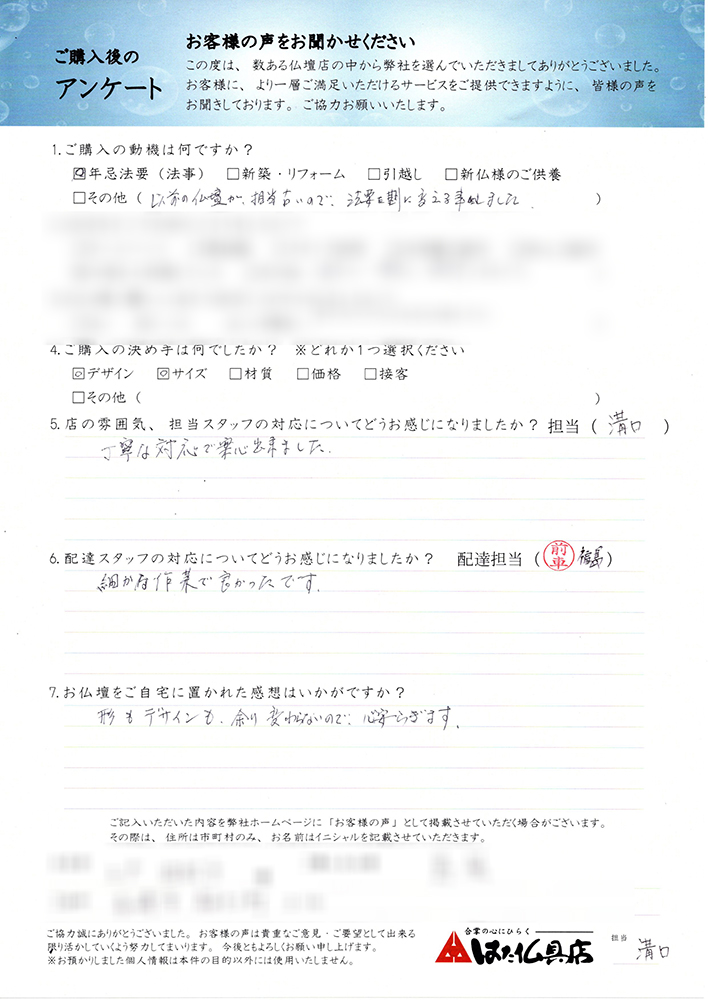 ご購入後の
アンケート
お客様の声をお聞かせください
この度は、数ある仏壇店の中から弊社を選んでいただきましてありがとうございました。
お客様に、より一層ご満足いただけるサービスをご提供できますように、皆様の声を
お聞きしております。ご協力お願いいたします。
1.ご購入の動機は何ですか？
☑年忌法要（法事） □新築・リフォーム □引越し □新仏様のご供養
□その他（以前の仏壇が、担当古いので、法要を期に変える事にしました。）
4.ご購入の決め手は何でしたか？ ※どれか1つ選択ください
☑デザイン ☑サイズ □材質 □価格 □接客
□その他（ ）
5.店の雰囲気、担当スタッフの対応についてどうお感じになりましたか？ 担当（溝口）
丁寧な対応で安心出来ました。
6.配達スタッフの対応についてどうお感じになりましたか？ 配達担当（前車 福島）
細かな作業で良かったです。
7.お仏壇をご自宅に置かれた感想はいかがですか？
形もデザインも、余り変わらないので、心安らぎます。
ご記入いただいた内容を弊社ホームページに「お客様の声」として掲載させていただく場合がございます。
その際は、住所は市町村のみ、お名前はイニシャルを記載させていただきます。
ご協力誠にありがとうございました。お客様の声は貴重なご意見・ご要望として出来る
限り活かしていくよう努力してまいります。今後ともよろしくお願い申し上げます。
※お預かりしました個人情報は本件の目的以外には使用いたしません。
合掌の心にひらく
はた仏具店
担当
溝口